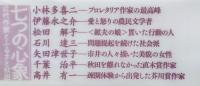 七つの心象
小林多喜二──プロレタリア作家の最高峰
伊藤永之介──愛と怒りの農民文学者
松田解子──〈雄夫の娘〉貫いた行動の人
石川達三──問題提起を続けた社会派
矢田津世子──市井の人々描いた美貌の女性
千葉治平──秋田を離れなかった直木賞作家
高井有一──疎開体験から出発した芥川賞作家